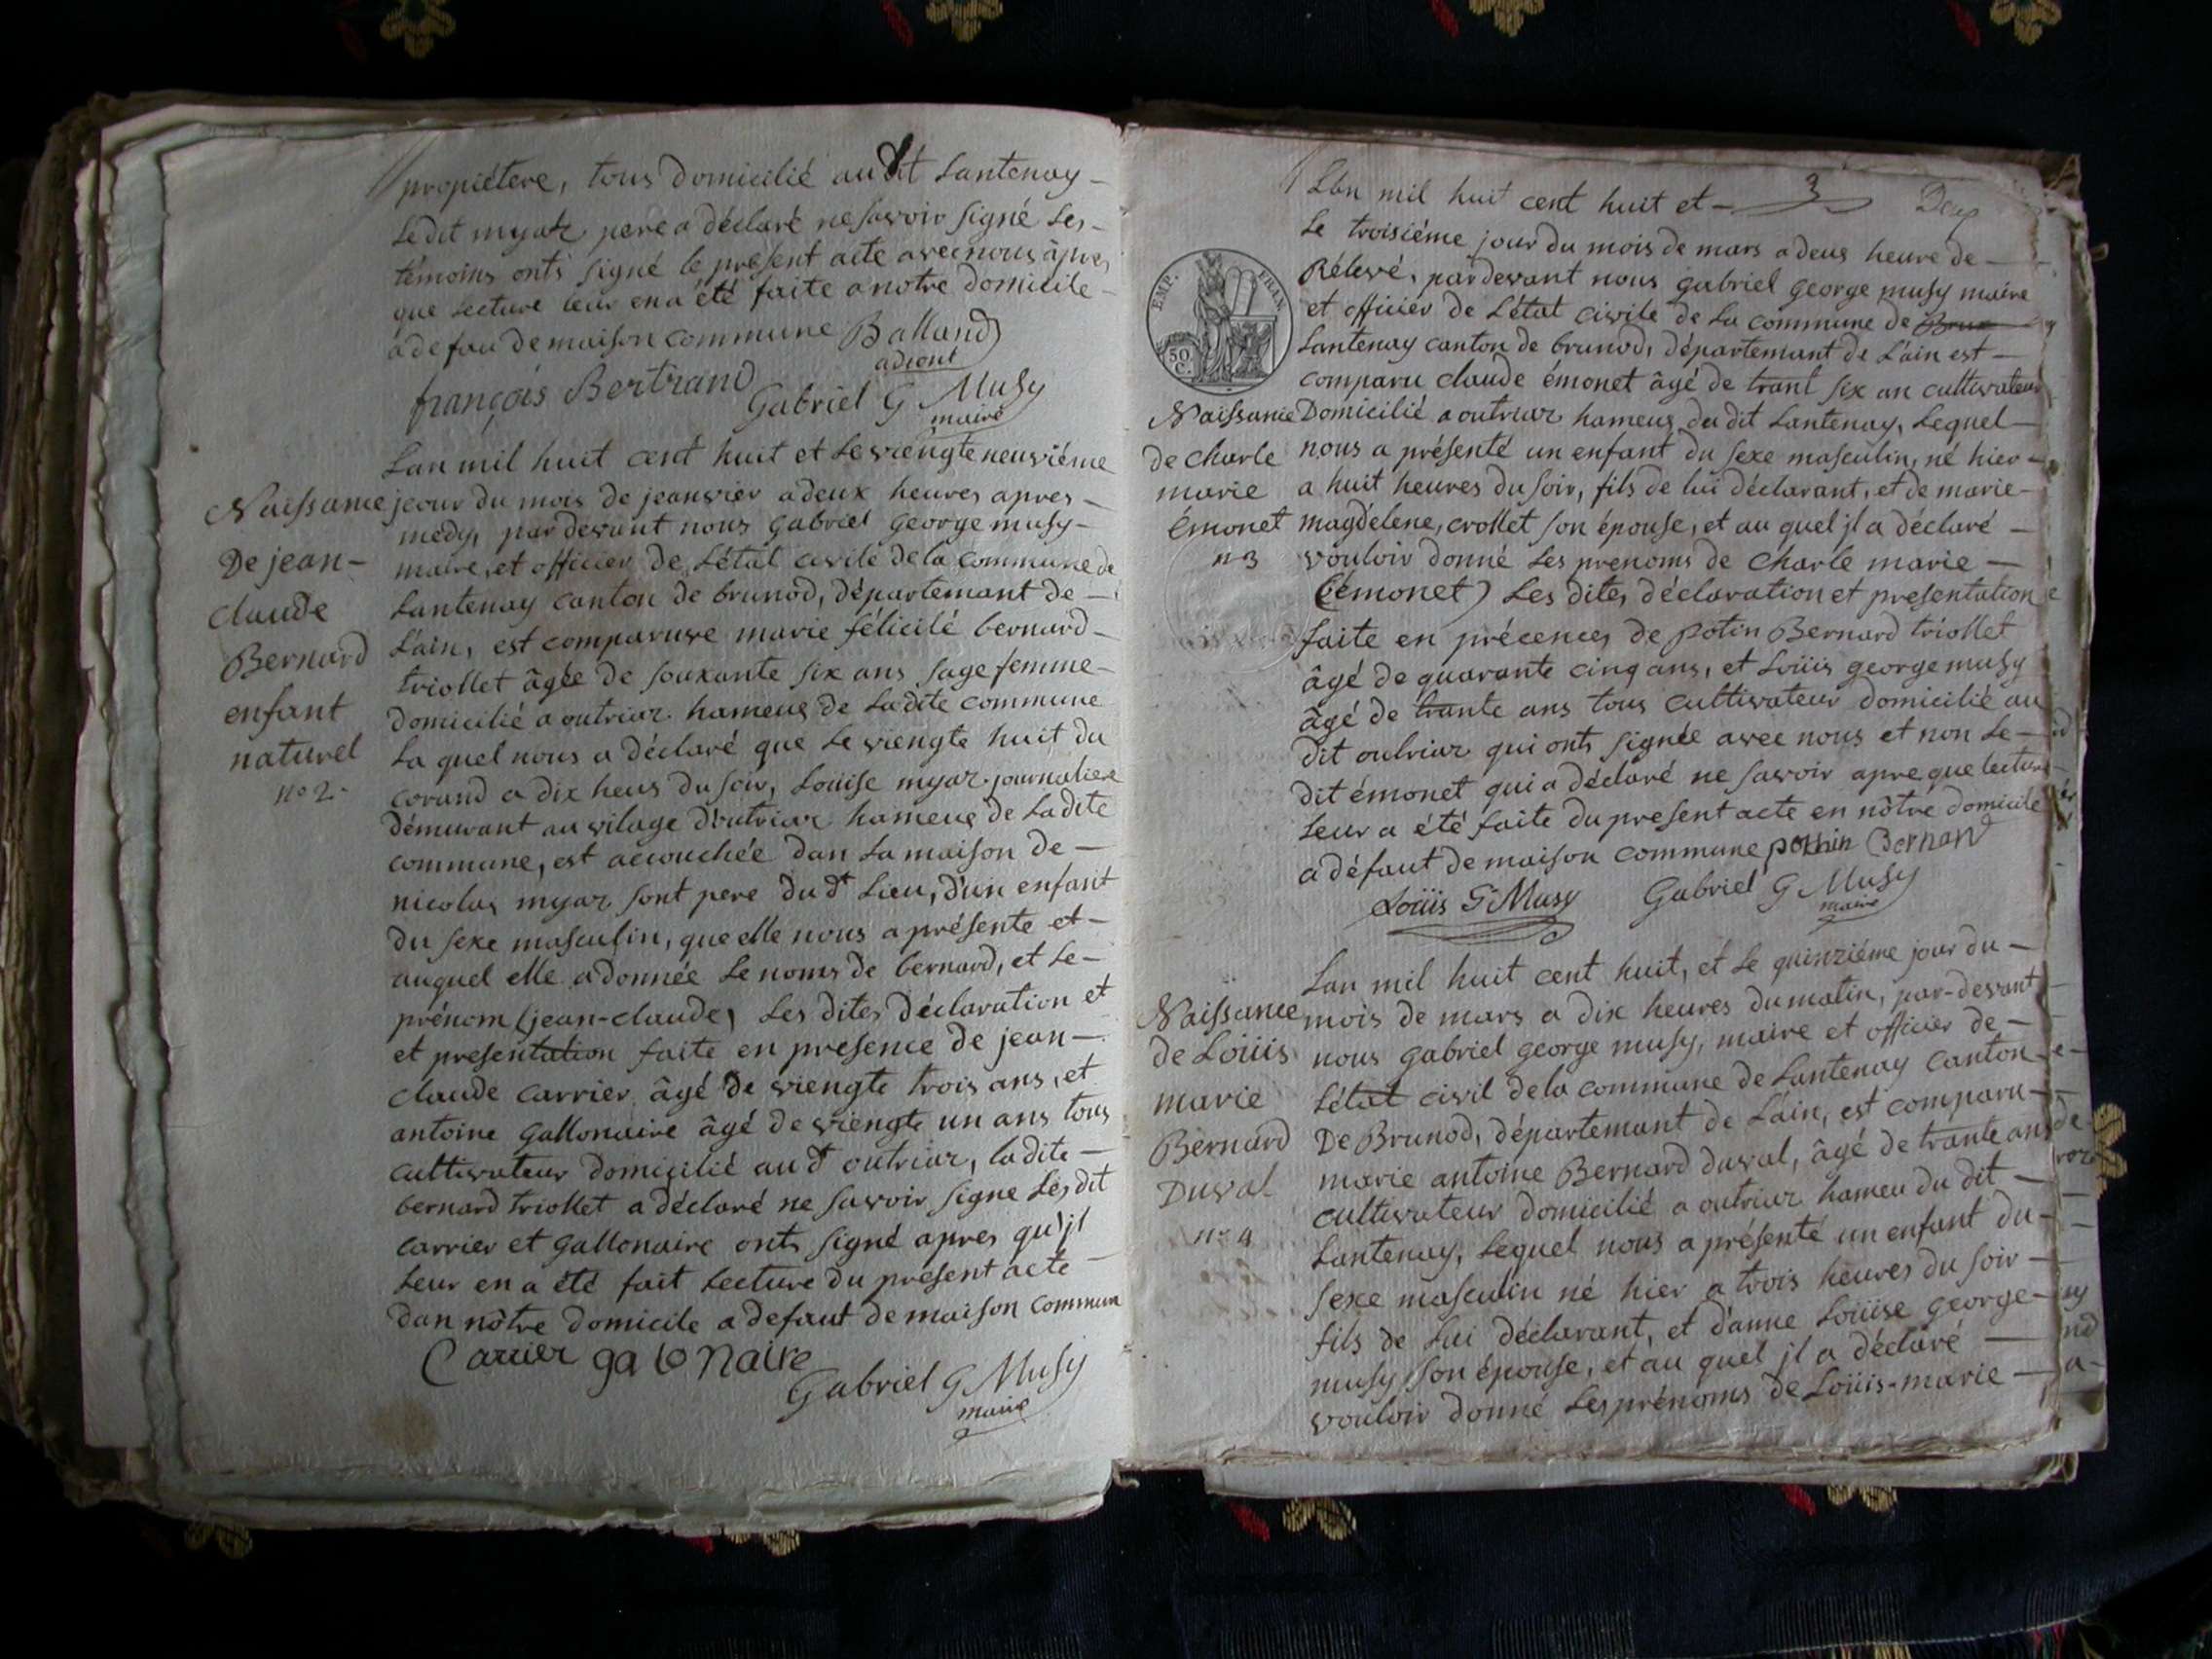 propiétere, tous domicilié audit Lantenay -
Ledit myar pere a déclaré ne savoir signé Les -
témoins onts signé le présent acte avec nous âpres
que Lecture leur en a été faite a notre domicile -
a defau de maison commune Balland
adiont
françois Bertrand Gabriel G Musy
maire
Naissance
De jean -
claude
Bernard
enfant
naturel
no 2.
Lan mil huit cent huit et Le viengte neuviéme
jeour du mois de jeanvier a deux heures apres -
medy, par devant nous gabriel george musy -
maire, et officier de L'état civile de la commune de
Lantenay canton de brunod, départemant de -
L'ain, est comparuve marie félicilé bernard -
triollet âgée de souxante six ans sage femme -
domicilié a outriaz hameus de Ladite commune
La quel nous a déclaré que Le viengte huit du
corand a dix heus du soir, Louise myar journaliere
démurant au vilage d'outriaz hameus de Ladite
commune, est accouchée dan La maison de -
nicolas myar sont pere du dt Lieu, d'un enfant
du sexe masculin, que elle nous a présente et -
auquel elle a donnée Le noms de bernard, et Le -
prénom (jean-claude) Les dites déclaration et
et presentation faite en presence de jean -
claude carrier âgé de viengte trois ans, et
antoine gallonaire âgé de viengte un ans tous
cultivateur domicilié au dt outriaz, ladite -
bernard triollet a déclaré ne savoir signe Les dit
carrier et gallonaire onts signé apres qu'jl
Leur en a été fait Lecture du présent acte -
dan nôtre domicile a defaut de maison commun
Carrier ga lo naire
Gabriel G Musy
maire
3 Deux
Lan mil huit cent huit et -
Le troisiéme jour du mois de mars a deus heure de -
Rélevé, par devant nous gabriel george musy maire
et officier de L'état civile de La commune de
Lantenay canton de brunod, départemant de L'ain est -
comparu claude émonet âgé de trant six an cultivateur
Domicilié a outriaz hameus du dit Lantenay, Lequel -
nous a présenté un enfant du sexe masculin, né hier -
a huit heures du soir, fils de lui déclarant, et de marie -
magdelene, crollet son épouse, et au quel jl a déclaré -
vouloir donné Les prenoms de Charle marie -
(émonet) Les dites déclaration et presentation
faite en précences de potin Bernard triollet
âgé de quarante cinq ans, et Loüis george musy
âgé de trante ans tous cultivateur domicilié au
dit outriaz qui onts signée avec nous et non Le -
dit émonet qui a déclaré ne savoir apre que lecture
Leur a été faite du present acte en nôtre domicile
a défaut de maison commune pothin Bernard
Loüis G Musy Gabriel G Musy
maire
EMP. FRAN.
50 C.
Naissance
de charle
marie
émonet
n 3
Naissance
de Loüis
marie
Bernard
Duval
no 4
Lan mil huit cent huit, et Le quinziéme jour du -
mois de mars a dix heures du matin, par-devant
nous gabriel george musy, maire et officier de -
L'état civil de la commune de Lantenay canton
De Brunod, départemant de L'ain, est comparu -
marie antoine Bernard duval, âgé de trante ans
cultivateur domicilié a outriaz hameu du dit -
Lantenay, Lequel nous a présenté un enfant du -
sexe masculin né hier a trois heures du soir -
fils de Lui déclarant, et d'anne Loüise george -
musy son épouse, et au quel jl a déclaré -
vouloir donné Les prénoms de Loüis-marie -